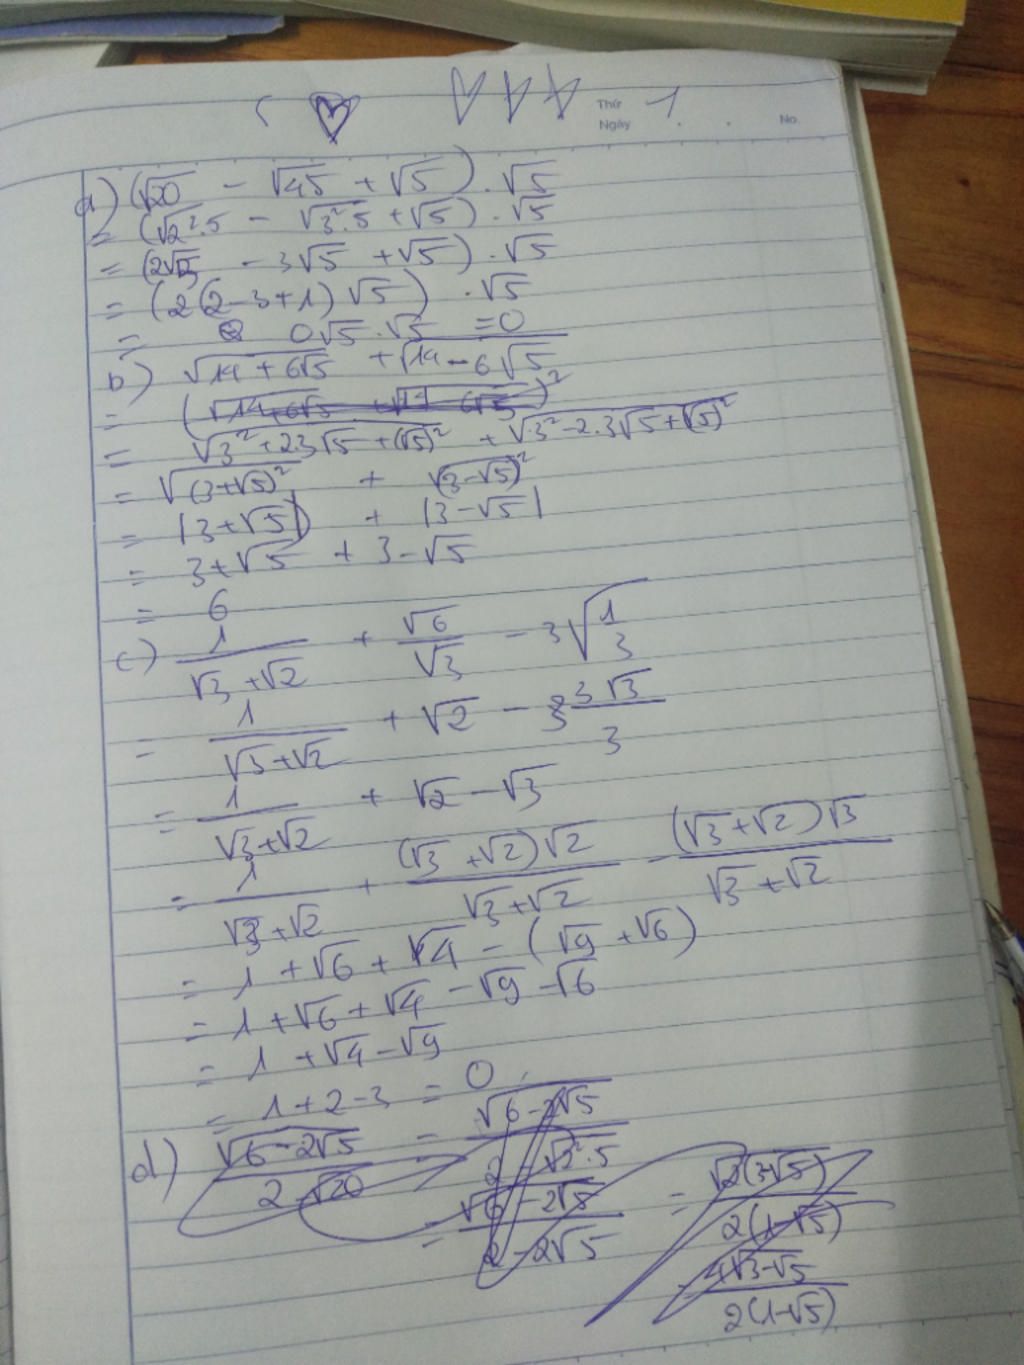 Thứ 1
Ngày . . No.
a) (√20 - √45 + √5) . √5
= (√2².5 - √3².5 + √5) . √5
= (2√5 - 3√5 + √5) . √5
= (2(2-3+1)√5) . √5
= 0√5 . √5 = 0
b) √14 + 6√5 + √14 - 6√5
= (√14+6√5 + √14 - 6√5)²
= √3² + 2.3√5 + (√5)² + √3² - 2.3√5 + (√5)²
= √(3+√5)² + √(3-√5)²
= |3+√5| + |3-√5|
= 3+√5 + 3-√5
= 6
c) 1/(√3+√2) + √6/√3 - 3√(1/3)
= 1/(√3+√2) + √2 - 3√3/3
= 1/(√3+√2) + √2 - √3
= 1/(√3+√2) + (√3+√2)√2/(√3+√2) - (√3+√2)√3/(√3+√2)
= 1 + √6 + √4 - (√9 + √6)
= 1 + √6 + √4 - √9 - √6
= 1 + √4 - √9
= 1 + 2 - 3 = 0
d) √6-2√5/(2-√20) = √6-2√5/(2-√2².5)
= √6-2√5/(2-2√5) = √2(3-√5)/2(1-√5)
= 4√3-√5/2(1-√5)